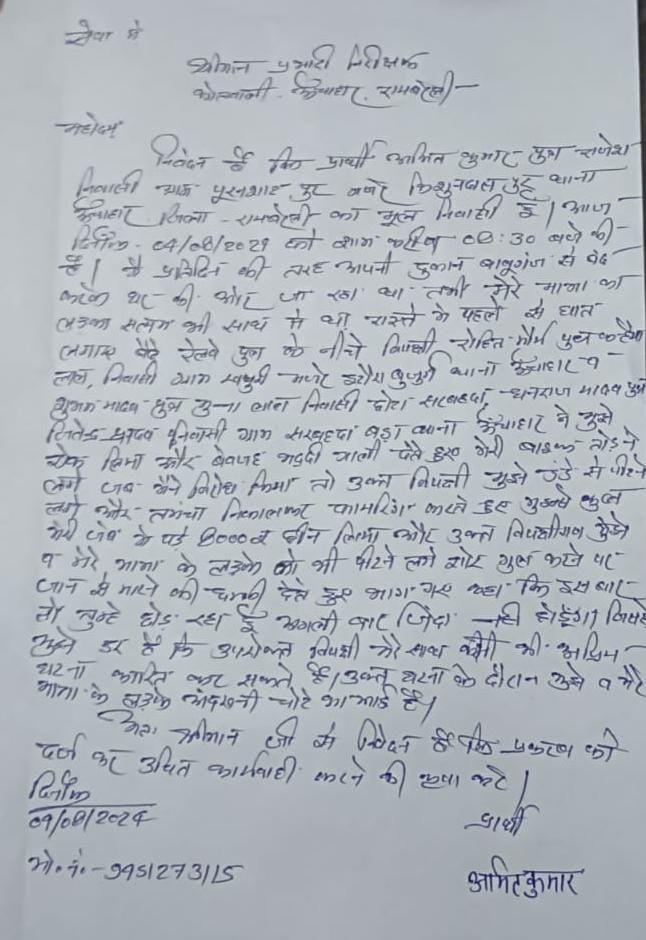 सेवा में
श्रीमान प्रभारी निरीक्षक
कोतवाली ऊँचाहार, रायबरेली
महोदय,
निवेदन है कि प्रार्थी अमित कुमार पुत्र गणेश
निवासी ग्राम मजरे किशुनदासपुर थाना
ऊँचाहार जिला रायबरेली का मूल निवासी है। आज
दिनाँक 04/08/2024 को शाम करीब 08:30 बजे की
है। मैं प्रतिदिन की तरह अपनी दुकान बाबूगंज से बंद
करके घर की ओर जा रहा था तभी मेरे मामा का
लड़का सत्यम भी साथ में था रास्ते में पहले से घात
लगाए बैठे रेलवे पुल के नीचे विपक्षी रोहित मौर्य पुत्र कन्हैया
लाल, निवासी ग्राम मजरे बुजुर्ग थाना ऊँचाहार व
शुभम यादव पुत्र लाल निवासी छोटा सरबहदा, धनराज यादव पुत्र
जितेन्द्र यादव निवासी ग्राम सरबहदा बड़ा थाना ऊँचाहार ने मुझे
रोक लिया और बेवजह भद्दी गाली देते हुए मेरी बाइक तोड़ने
लगे जब मैंने विरोध किया तो उक्त विपक्षी मुझे डंडे से पीटने
लगे और तमंचा निकालकर फायरिंग करते हुए मुझसे
मेरी जेब में पड़े 8000रु छीन लिया और उक्त विपक्षीगण मुझे
व मेरे मामा के लड़के को भी पीटने लगे शोर गुल करने पर
जान से मारने की धमकी देते हुए भाग गए कहा कि इस बार
तो तुम्हे छोड़ रहा हूँ अगली बार जिंदा नही छोड़ेंगा जिससे
मुझे डर है कि उपरोक्त विपक्षी मेरे साथ कभी भी अप्रिय
घटना कारित कर सकते हैं। उक्त घटना के दौरान मुझे व मेरे
मामा के लड़के अंदरूनी चोटे आ गई है।
अतः श्रीमान जी से निवेदन है कि प्रकरण को
दर्ज कर उचित कार्यवाही करने की कृपा करे।
दिनाँक
04/08/2024
प्रार्थी
मो. नं.- 9451273115
अमित कुमार